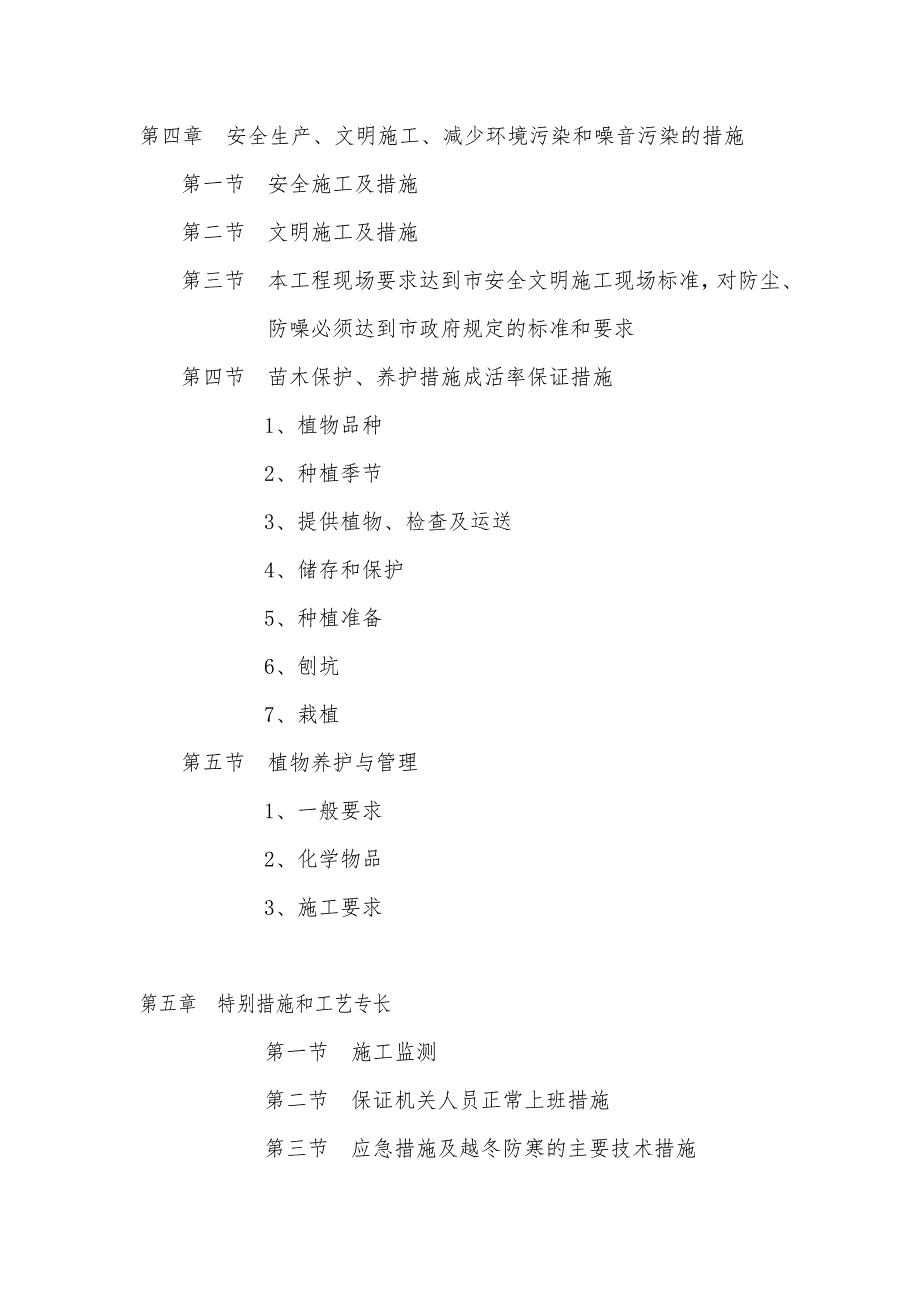 第四章　安全生产、文明施工、减少环境污染和噪音污染的措施
第一节　安全施工及措施
第二节　文明施工及措施
第三节　本工程现场要求达到市安全文明施工现场标准，对防尘、
防噪必须达到市政府规定的标准和要求
第四节　苗木保护、养护措施成活率保证措施
1、植物品种
2、种植季节
3、提供植物、检查及运送
4、储存和保护
5、种植准备
6、刨坑
7、栽植
第五节　植物养护与管理
1、一般要求
2、化学物品
3、施工要求
第五章　特别措施和工艺专长
第一节　施工监测
第二节　保证机关人员正常上班措施
第三节　应急措施及越冬防寒的主要技术措施